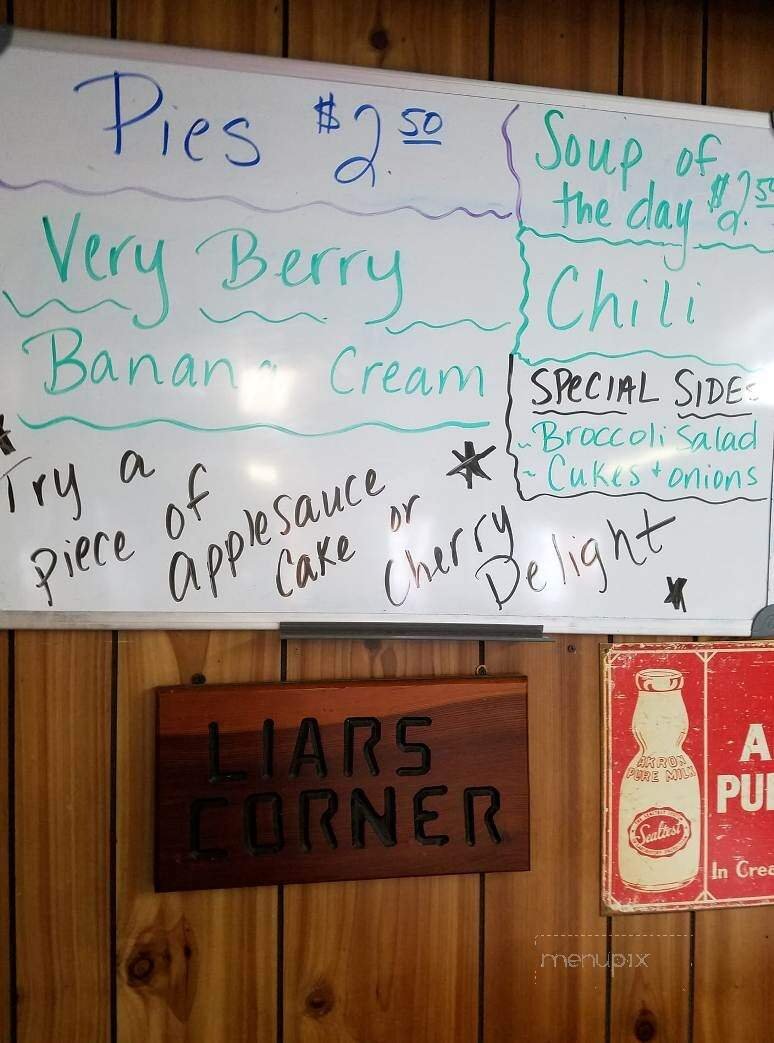 Pies $2.50
Very Berry
Banana Cream
Try a
piece of
applesauce
Cake or
Cherry
Delight
Soup of
the day $2.50
Chili
SPECIAL SIDES
~ Broccoli Salad
~ Cukes + onions
LIARS
CORNER
AKRON
PURE MILK
Sealtest
A
PU
In Crea
menupix